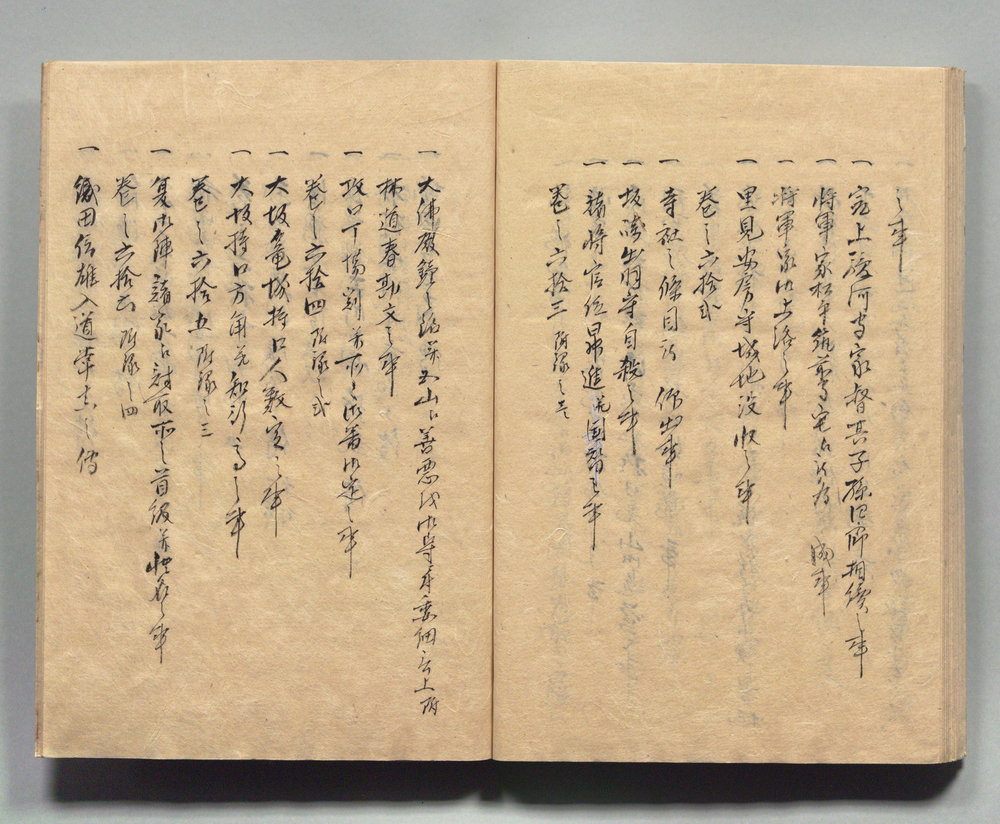 之事
一 最上駿河守家督其子源四郎相續之事
一 将軍家松平筑前守宅江被為 成事
一 将軍家御上洛之事
一 里見安房守城地没收之事
巻之六拾弐
一 寺社之條目被 仰出事
一 坂崎出羽守自殺之事
一 諸将官位昇進諸国替之事
巻之六拾三 附録之壱
一 大佛殿鐘之銘并五山江善悪御尋身委細言上附
林道春勘文之事
一 攻口丁場割并所之御普御定之事
巻之六拾四 附録之弐
一 大坂竜城持口人数定之事
一 大坂持口方角并知行高之事
巻之六拾五 附録之三
一 夏御陣諸家江討取所之首級并姓名之事
巻之六拾六 附録之四
一 織田信雄入道常真之傳